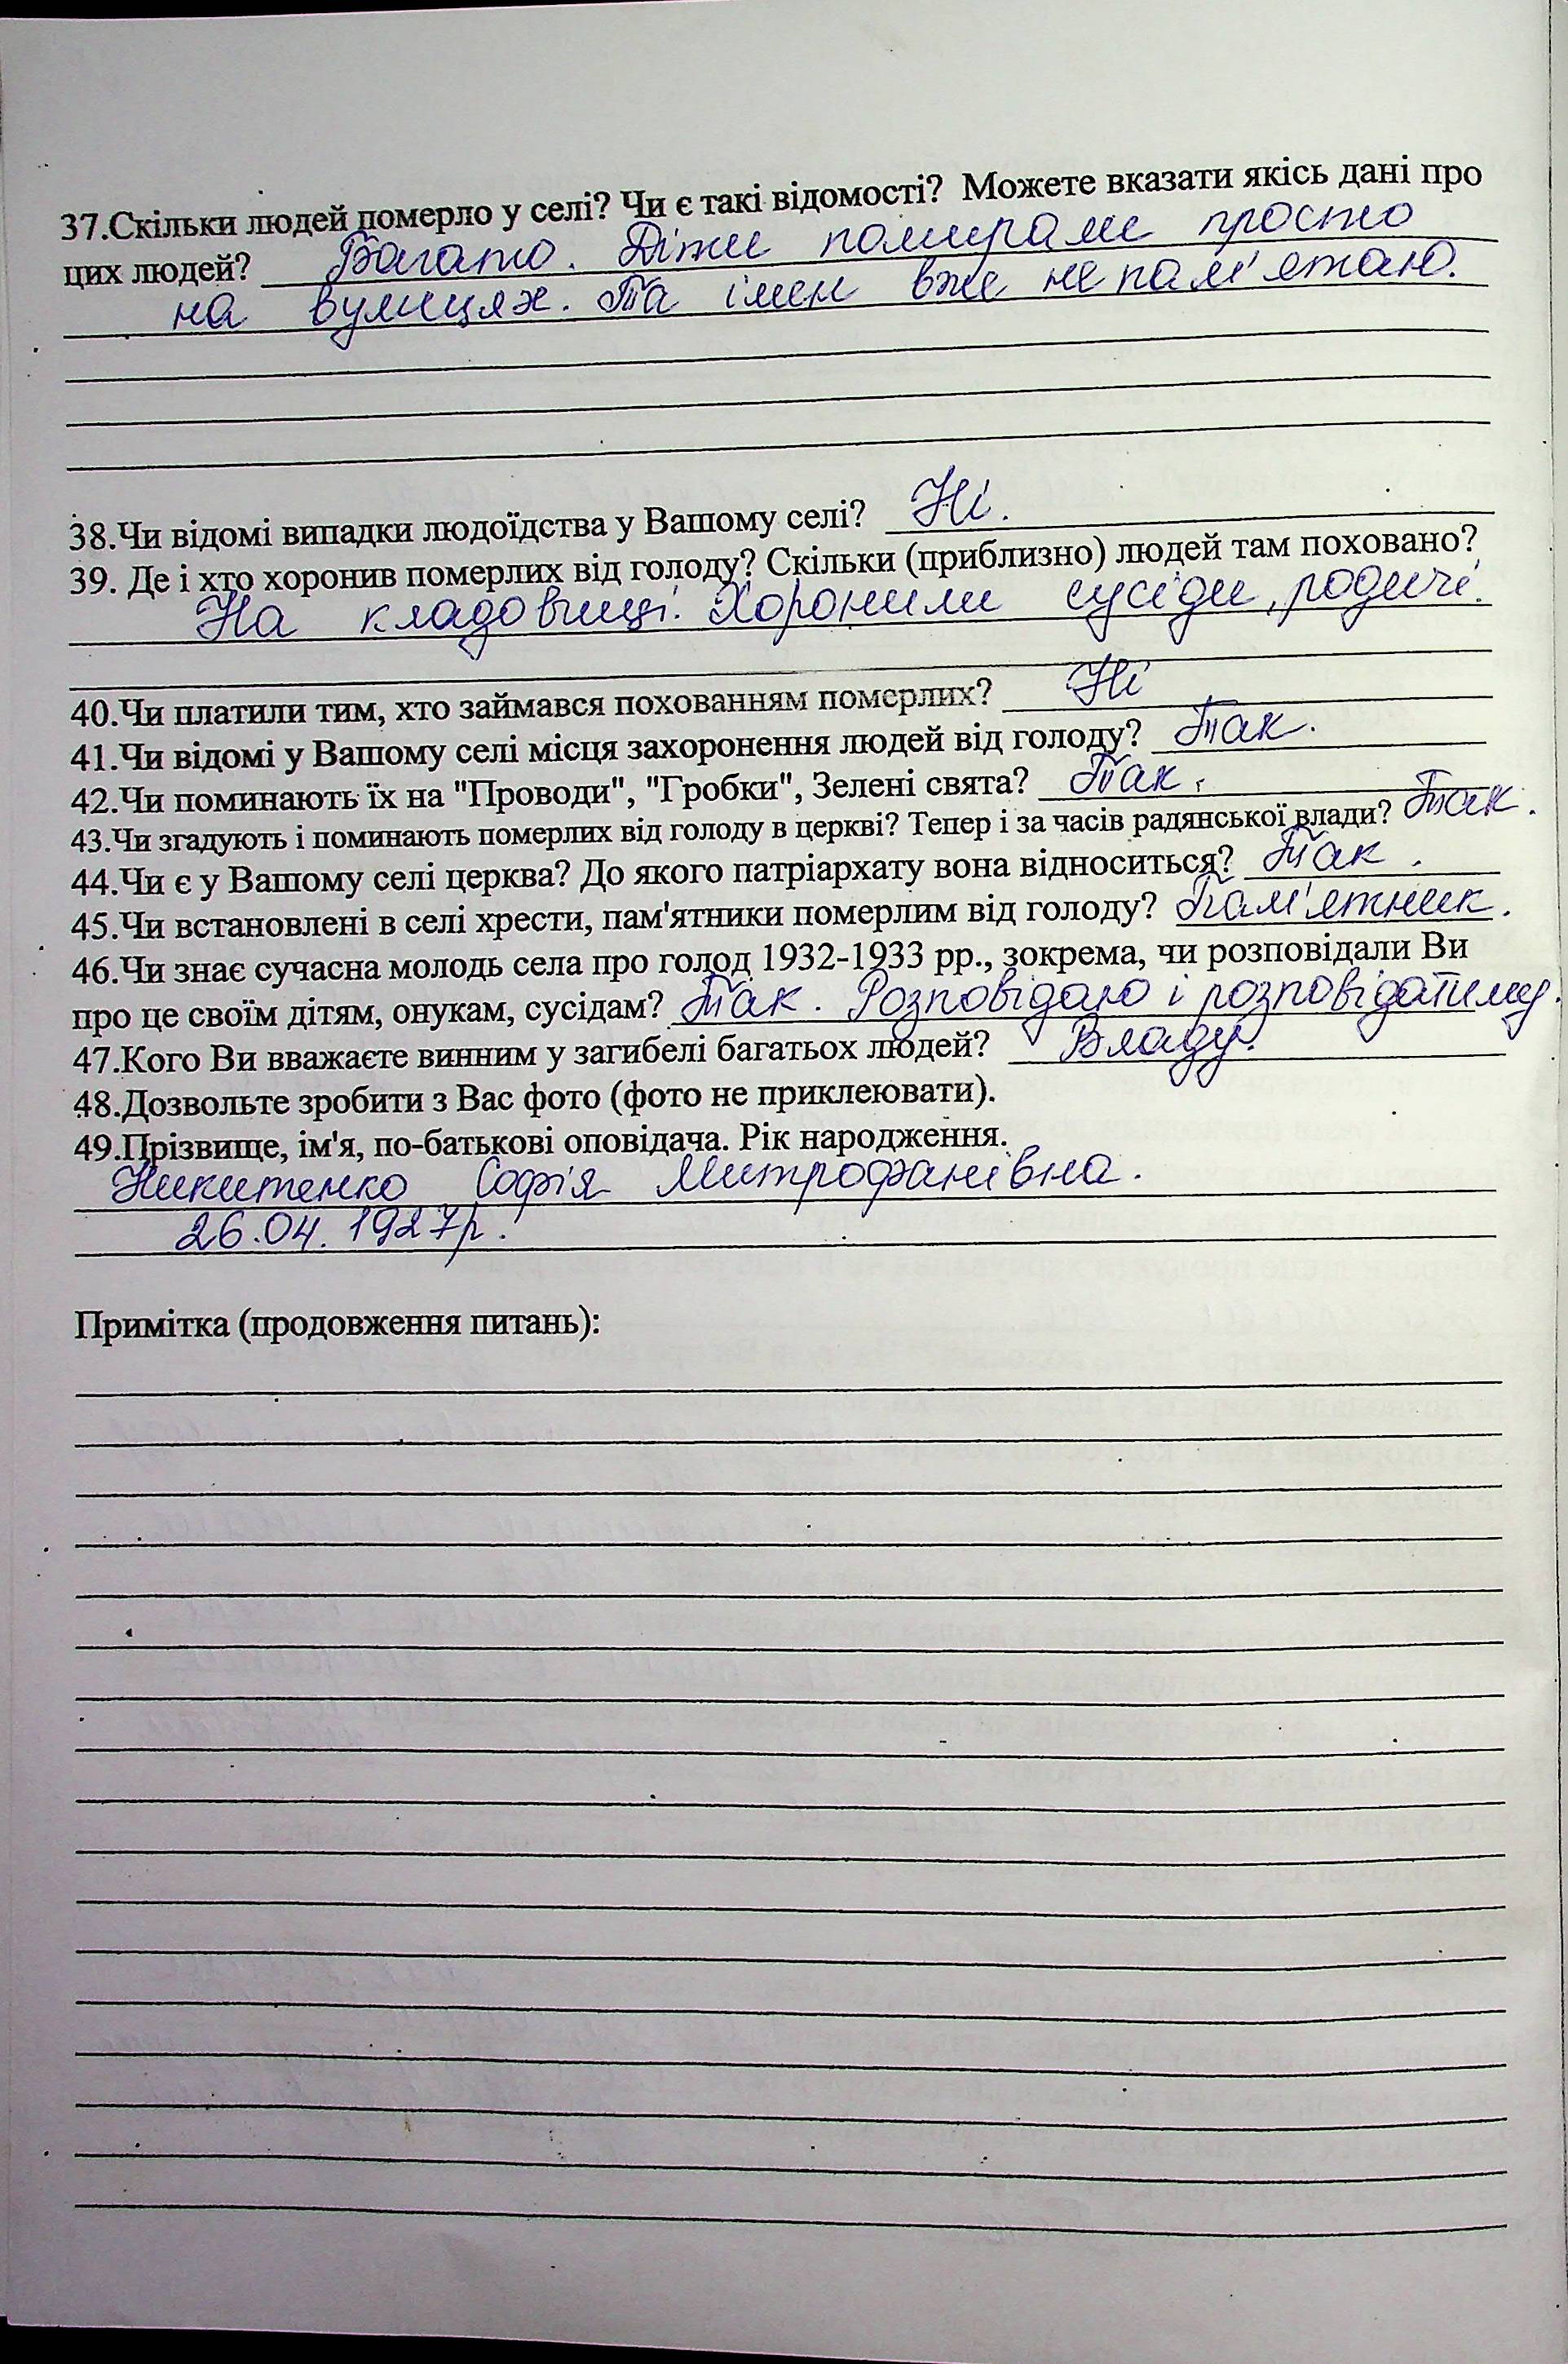 37.Скільки людей померло у селі? Чи є такі відомості? Можете вказати якісь дані про
цих людей? Багато. Діти помирали просто
на вулицях. Та імен вже не пам'ятаю.
38.Чи відомі випадки людоїдства у Вашому селі? Ні.
39. Де і хто хоронив померлих від голоду? Скільки (приблизно) людей там поховано?
На кладовищі. Хоронили сусіди, родичі.
40.Чи платили тим, хто займався похованням померлих? Ні
41.Чи відомі у Вашому селі місця захоронення людей від голоду? Так.
42.Чи поминають їх на "Проводи", "Гробки", Зелені свята? Так.
43.Чи згадують і поминають померлих від голоду в церкві? Тепер і за часів радянської влади? Так.
44.Чи є у Вашому селі церква? До якого патріархату вона відноситься? Так.
45.Чи встановлені в селі хрести, пам'ятники померлим від голоду? Пам'ятник.
46.Чи знає сучасна молодь села про голод 1932-1933 рр., зокрема, чи розповідали Ви
про це своїм дітям, онукам, сусідам? Так. Розповідаю і розповідатиму.
47.Кого Ви вважаєте винним у загибелі багатьох людей? Владу.
48.Дозвольте зробити з Вас фото (фото не приклеювати).
49.Прізвище, ім'я, по-батькові оповідача. Рік народження.
Никитенко Софія Митрофанівна.
26.04.1927р.
Примітка (продовження питань):